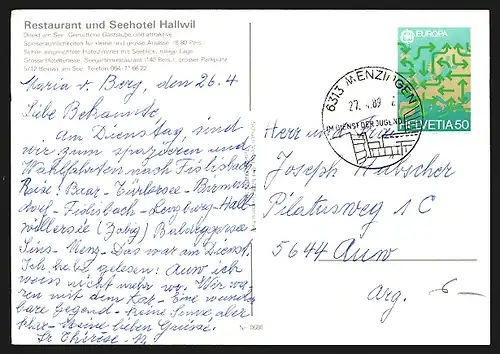 Restaurant und Seehotel Hallwil
Direkt am See. Gemütliche Gaststube und attraktive
Speiseräumlichkeiten für kleine und grosse Anlässe 18-80 Pers.
Schön eingerichtete Hotelzimmer mit Seeblick, ruhige Lage
Grosse Hotelterrasse, Seegartenrestaurant 140 Pers., grosser Parkplatz
Beinwil am See - Telefon 064 71
Maria v. Berg, den 26.4
Liebe Bekannte
Am Dienstag, sind
wir zum spazieren und
Wahlfahrten nach Fislisbach
Reise! Baar - Türlersee - Birmens
dorf - Fislisbach - Lenzburg - Hall
willersee (Zobig) Baldeggersee
Sins - Menz - Das war am Dienst.
Ich habe gelesen: Auw ich
weiss nicht mehr wo. Wir wa
ren mit dem Car - Eine wunder
bare Gegend - Keine Sonne, aber
klar - Meine lieben Grüsse.
Sr Thérèse - M
Nr. 0686
EUROPA
HELVETIA 50
6313 MENZINGEN
27. 4. 89
IM DIENST DER JUGEND
Herr und Frau
Joseph Huwyscher
Pilatusweg 1 C
5644 Auw
Arg.
6-